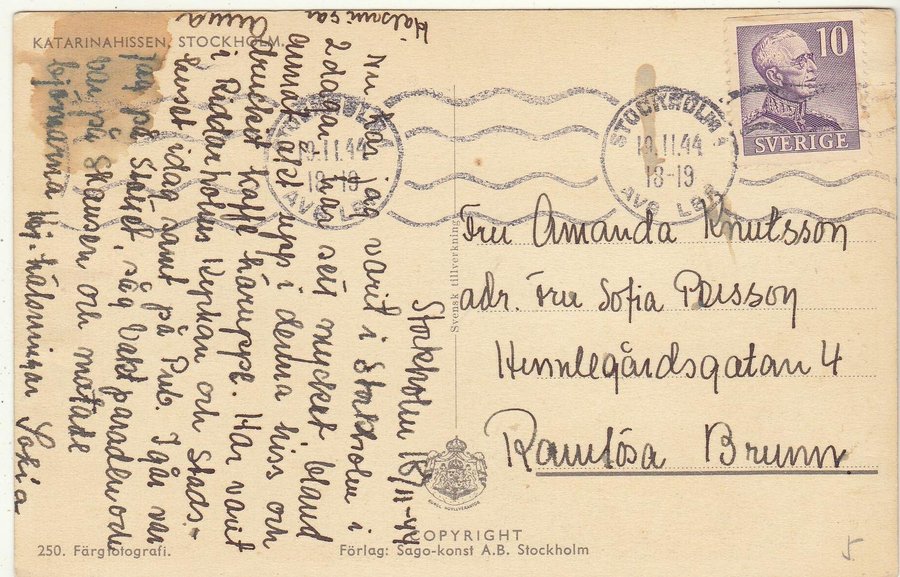 KATARINAHISSEN, STOCKHOLM.
10
SVERIGE
STOCKHOLM 1
19.11.44
18-19
AVG LBR
STOCKHOLM 1
19.11.44
18-19
AVG LBR
Stockholm 18/11-44
Nu har jag varit i Stockholm i
2 dagar har sett mycket bland
annat åkt upp i denna hiss och
druckit kaffe häruppe. Har varit
i Riddarholms kyrkan och Stads-
huset idag samt på Pub. Igår var
jag på Slottet, såg Vaktparaden och
var på Skansen och matade
björnarna Hj. hälsningar Sofia
Hälsningar
Anna
Svensk tillverkning
Fru Amanda Knutsson
adr. Fru Sofia Persson
Himmlegårdsgatan 4
Ramlösa Brunn
KUNGL. HOVLEVERANTÖR
COPYRIGHT
250. Färgfotografi.
Förlag: Sago-konst A.B. Stockholm
5